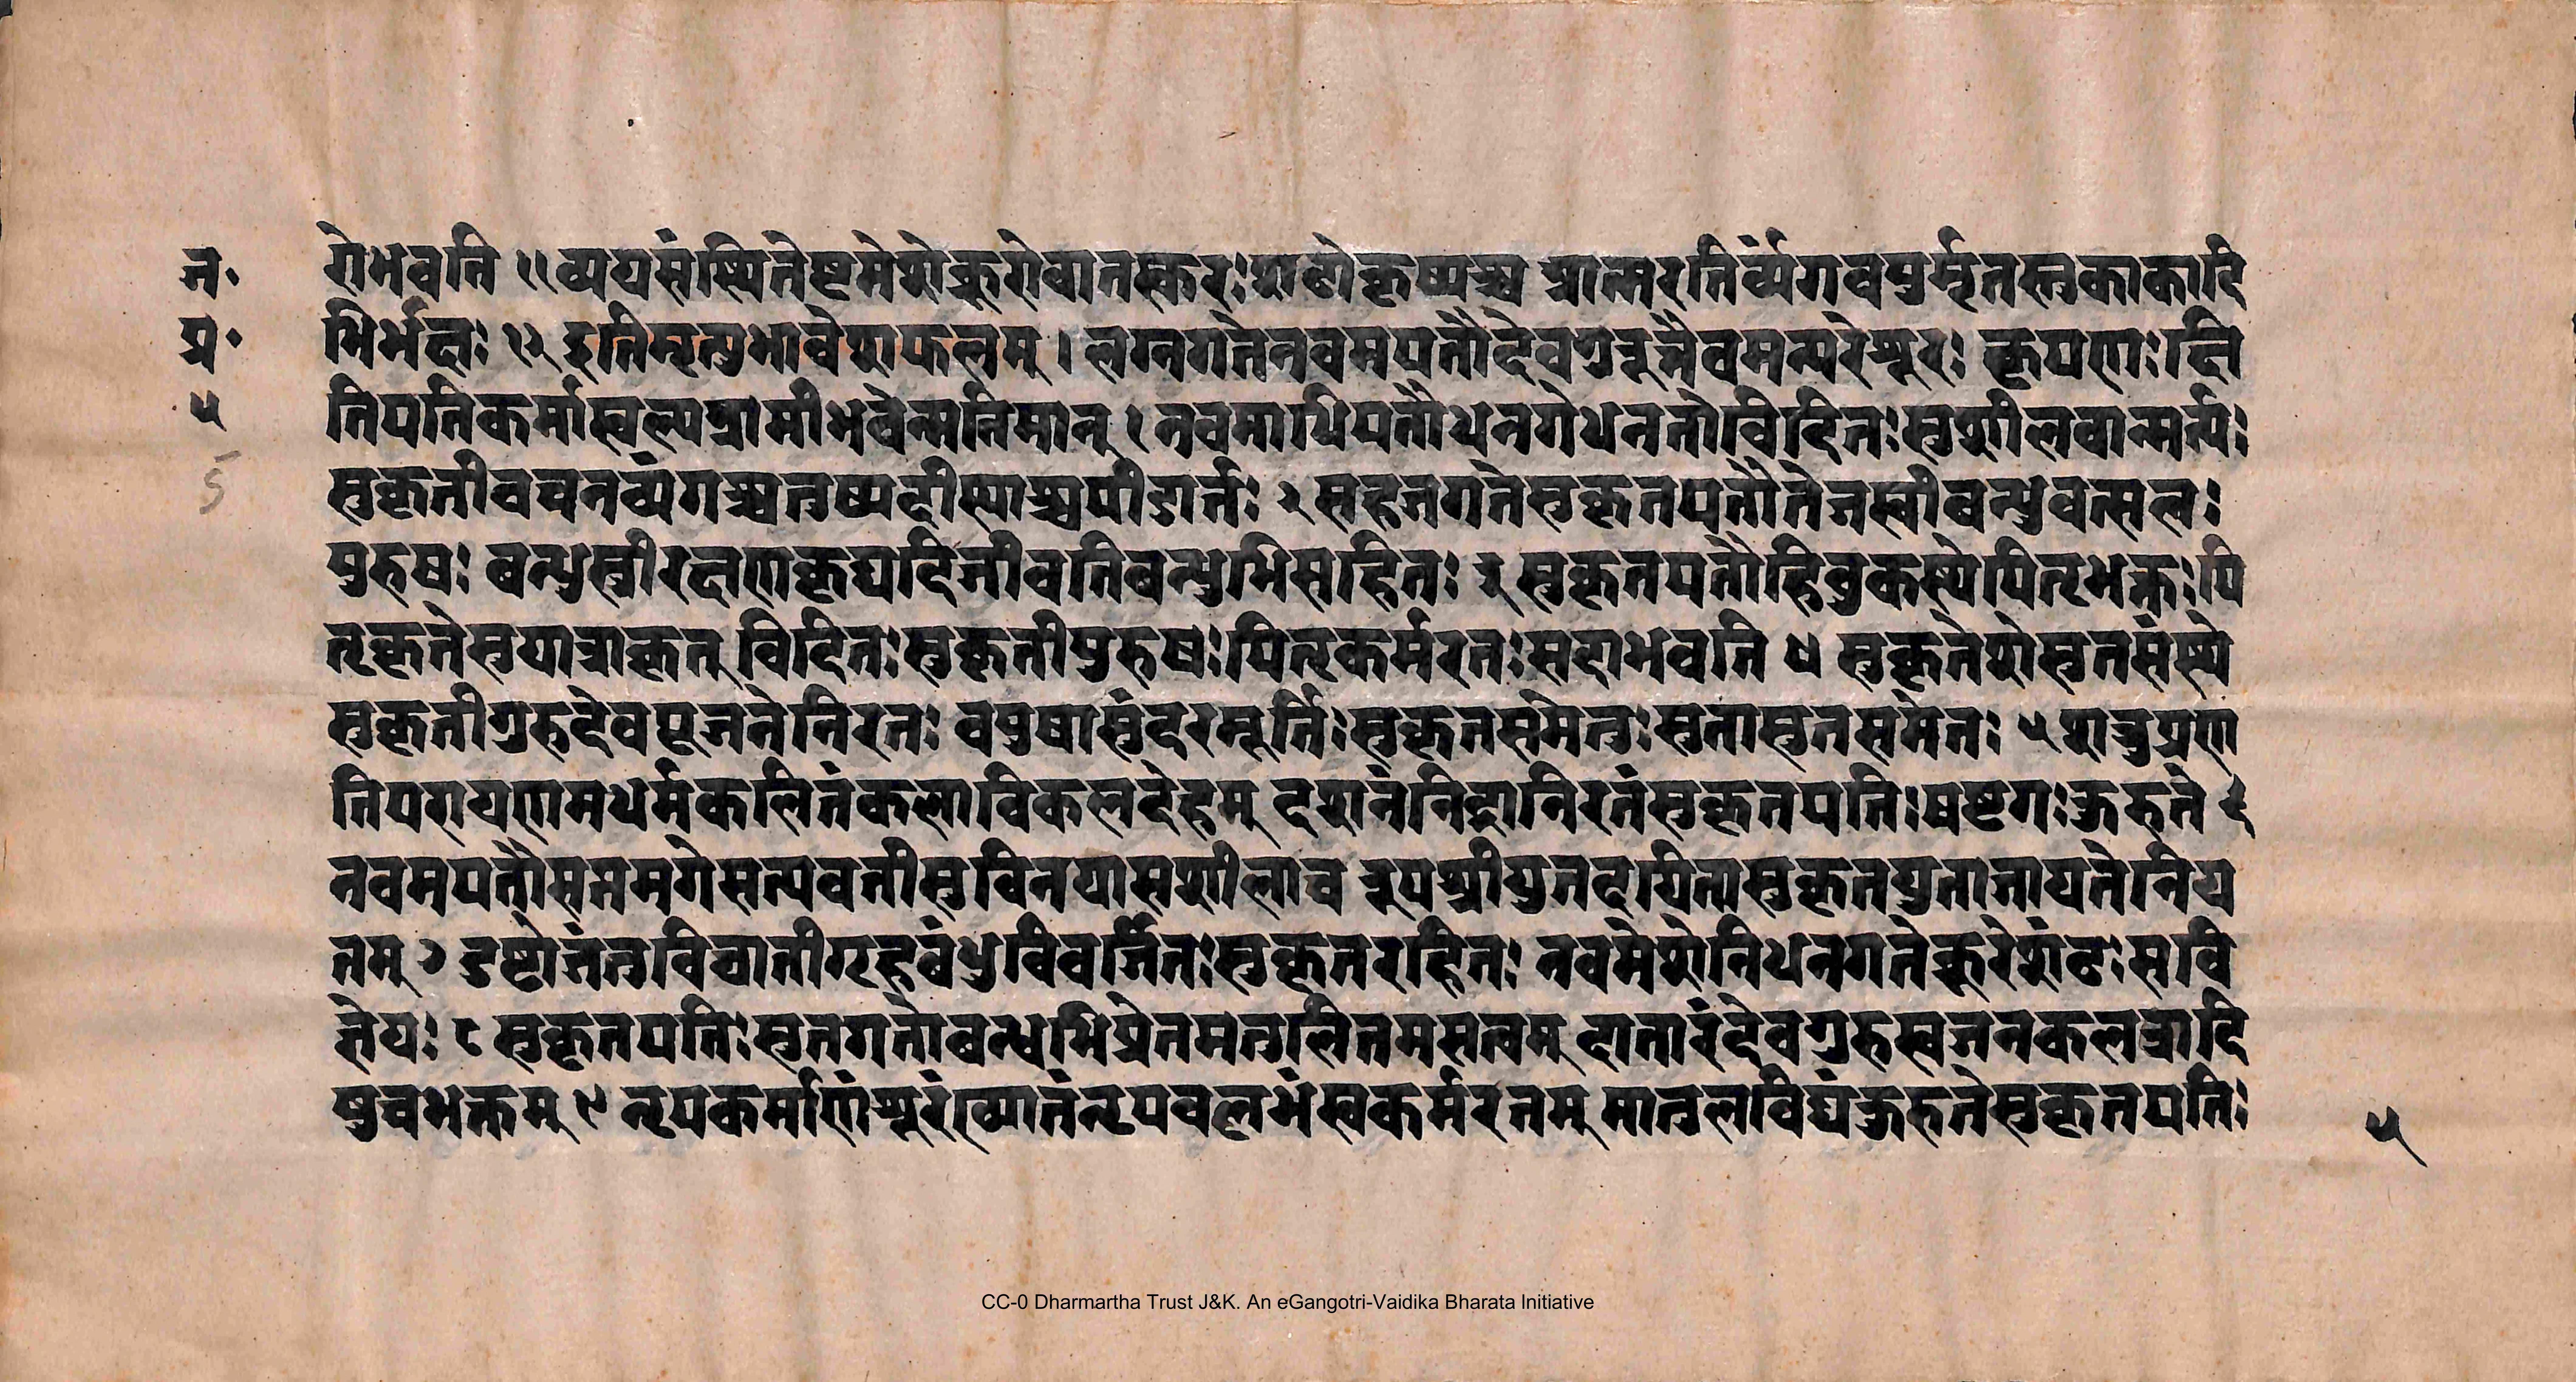 ज॰
प्र॰
५
5
रोभवति ११ व्ययसंस्थितेष्टमेशेक्रूरोवातस्करःशठोकृष्यश्च आत्मरतिर्व्यंगवपुर्मृतस्तुकाकादि
भिर्भक्षः १२ इतिमृत्युभावेशफलम् । लग्नगतेनवमपतौदेवगुरून्नैवमन्यरेशूरः कृपणःक्षि
तिपतिकर्मास्वल्पग्रामीभवेन्मतिमान् १ नवमाधिपतौधनगेधनतोविदितःसुशीलवान्मर्त्यः
सुकृतीवचनव्यंगश्चतुष्पदीस्याश्चपीडार्तः २ सहजगतेसुकृतपतौतेजस्वीबन्धुवत्सलः
पुरुषः बन्धुस्त्रीरक्षणकृद्यदिजीवतिबन्धुभिसहितः ३ सुकृतपतौहिबुकस्थेपितृभक्तःपि
तृकृतेसुयात्राकृत् विदितःसुकृतीपुरुषःपितृकर्मरतःसदाभवति ४ सुकृतेशेसुतसंस्थे
सुकृतीगुरुदेवपूजनेनिरतः वपुषासुंदरमूर्तिःसुकृतसमेतुःसुतासुतसमेतः ५ शत्रुप्रण
तिपरायणमधर्मकलितंकलाविकलदेहम् दशनंनिद्रानिरतंसुकृतपतिःषष्टगःकुरुते ६
नवमपतौसप्तमगेसत्यवतीसुविनयासशीलाच रूपश्रीयुतदयितासुकृतयुताजायतेनिय
तम् ७ दुष्टोजंतुविघातीगृहबंधुविवर्जितःसुकृतरहितः नवमेशेनिधनगतेक्रूरेशंढःसवि
ज्ञेयः ८ सुकृतपतिःसुतगतौबन्धुभिप्रेतमतुलितमसत्वम् दातारंदेवगुरुस्वजनकलत्रादि
षुचभक्तम् ९ नृपकर्माणंशूरंख्यातंनृपवलभंस्वकर्मरतम् मातुलविद्यंकुरुतेसुकृतपतिः
५
CC-0 Dharmartha Trust J&K. An eGangotri-Vaidika Bharata Initiative